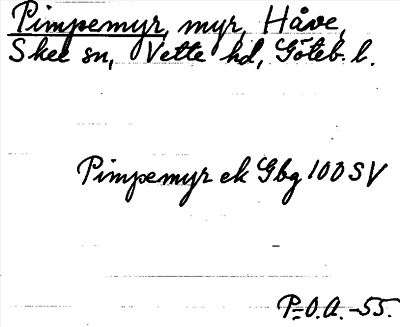 Pimpemyr, myr, Håve,
Skee sn, Vette hd, Göteb. l.
Pimpemyr ek Gbg 100 SV
P=O.A. -55.